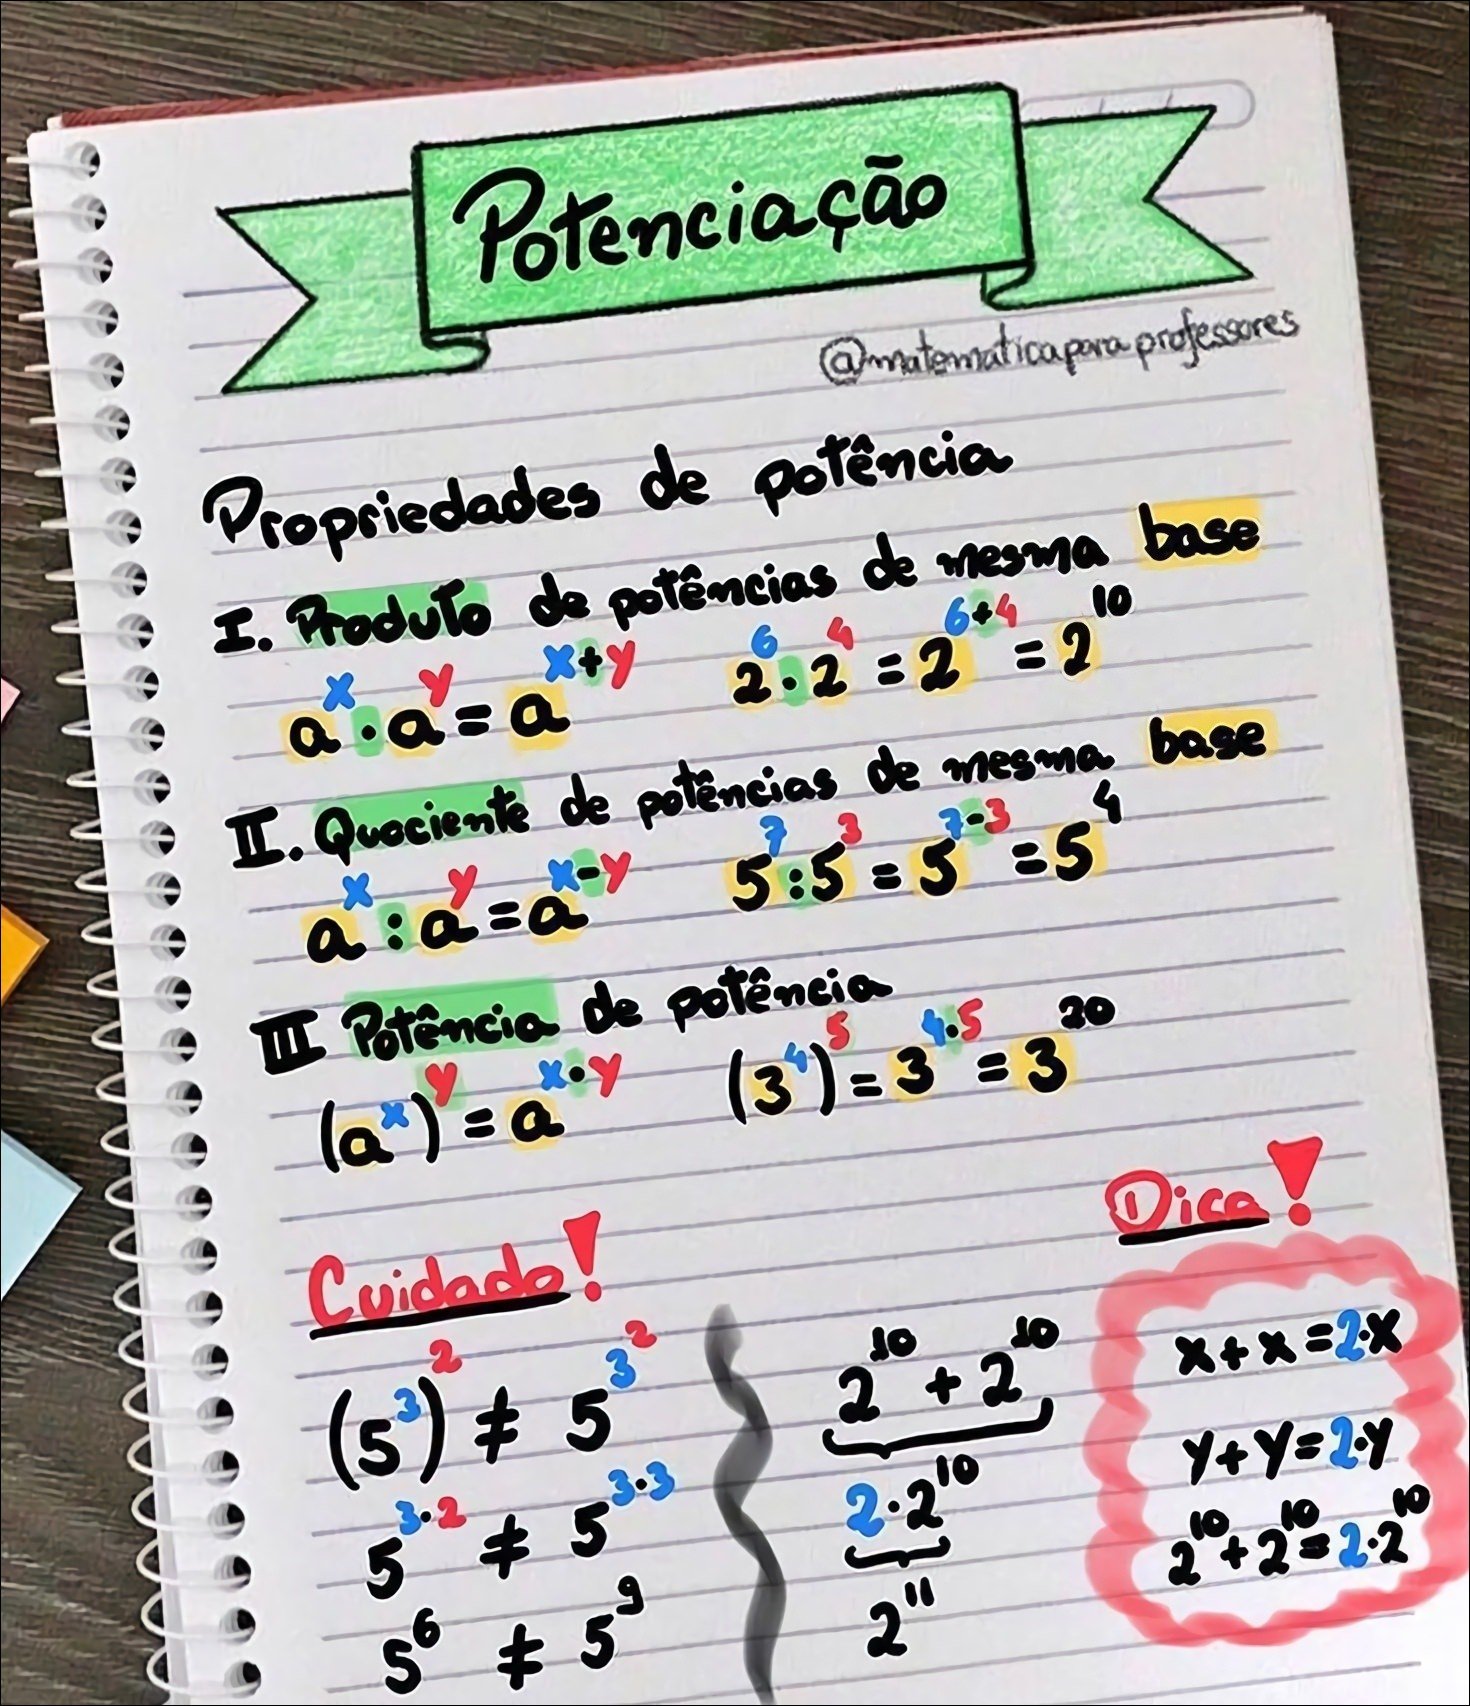 Potenciação
@matematicaparaprofessores
Propriedades de potência
I. Produto de potências de mesma base
aˣ · aʸ = aˣ⁺ʸ 2⁶ · 2⁴ = 2⁶⁺⁴ = 2¹⁰
II. Quociente de potências de mesma base
aˣ : aʸ = aˣ⁻ʸ 5⁷ : 5³ = 5⁷⁻³ = 5⁴
III Potência de potência
(aˣ)ʸ = aˣ·ʸ (3⁴)⁵ = 3⁴·⁵ = 3²⁰
Cuidado!
(5³)² ≠ 5^3^2
5³·² ≠ 5³·³
5⁶ ≠ 5⁹
2¹⁰ + 2¹⁰
2 · 2¹⁰
2¹¹
Dica!
x + x = 2·x
y + y = 2·y
2¹⁰ + 2¹⁰ = 2·2¹⁰